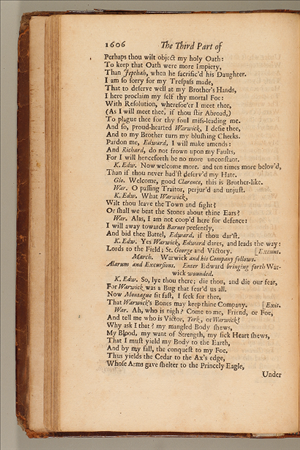 1606 The Third Part of
Perhaps thou wilt object my holy Oath:
To keep that Oath were more Impiety,
Than Jepthah, when he sacrific'd his Daughter.
I am so sorry for my Trespass made,
That to deserve well at my Brother's Hands,
I here proclaim my self thy mortal Foe:
With Resolution, wheresoe'er I meet thee,
(As I will meet thee, if thou stir Abroad,)
To plague thee for thy foul mis-leading me.
And so, proud-hearted Warwick, I defie thee,
And to my Brother turn my blushing Cheeks.
Pardon me, Edward, I will make amends:
And Richard, do not frown upon my Faults,
For I will henceforth be no more unconstant.
K. Edw. Now welcome more, and ten times more belov'd,
Than if thou never had'st deserv'd my Hate.
Glo. Welcome, good Clarence, this is Brother-like.
War. O passing Traitor, perjur'd and unjust.
K. Edw. What Warwick,
Wilt thou leave the Town and fight?
Or shall we beat the Stones about thine Ears?
War. Alas, I am not coop'd here for defence:
I will away towards Barnet presently,
And bid thee Battel, Edward, if thou dar'st.
K. Edw. Yes Warwick, Edward dares, and leads the way:
Lords to the Field; St. George and Victory. [Exeunt.
March. Warwick and his Company follows.
Alarum and Excursions. Enter Edward bringing forth War-
wick wounded.
K. Edw. So, lye thou there; die thou, and die our fear,
For Warwick was a Bug that fear'd us all.
Now Montague sit fast, I seek for thee,
That Warwick's Bones may keep thine Company. [Exit.
War. Ah, who is nigh? Come to me, Friend, or Foe,
And tell me who is Victor, York, or Warwick?
Why ask I that? my mangled Body shews,
My Blood, my want of Strength, my sick Heart shews,
That I must yield my Body to the Earth,
And by my fall, the conquest to my Foe.
Thus yields the Cedar to the Ax's edge,
Whose Arms gave shelter to the Princely Eagle,
Under